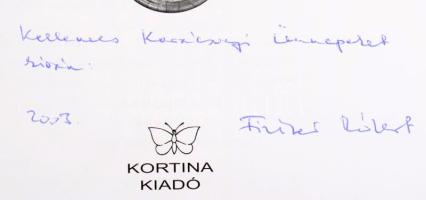 Kellemes Karácsonyi Ünnepeket
2003.
Róbert
KORTINA
KIADÓ